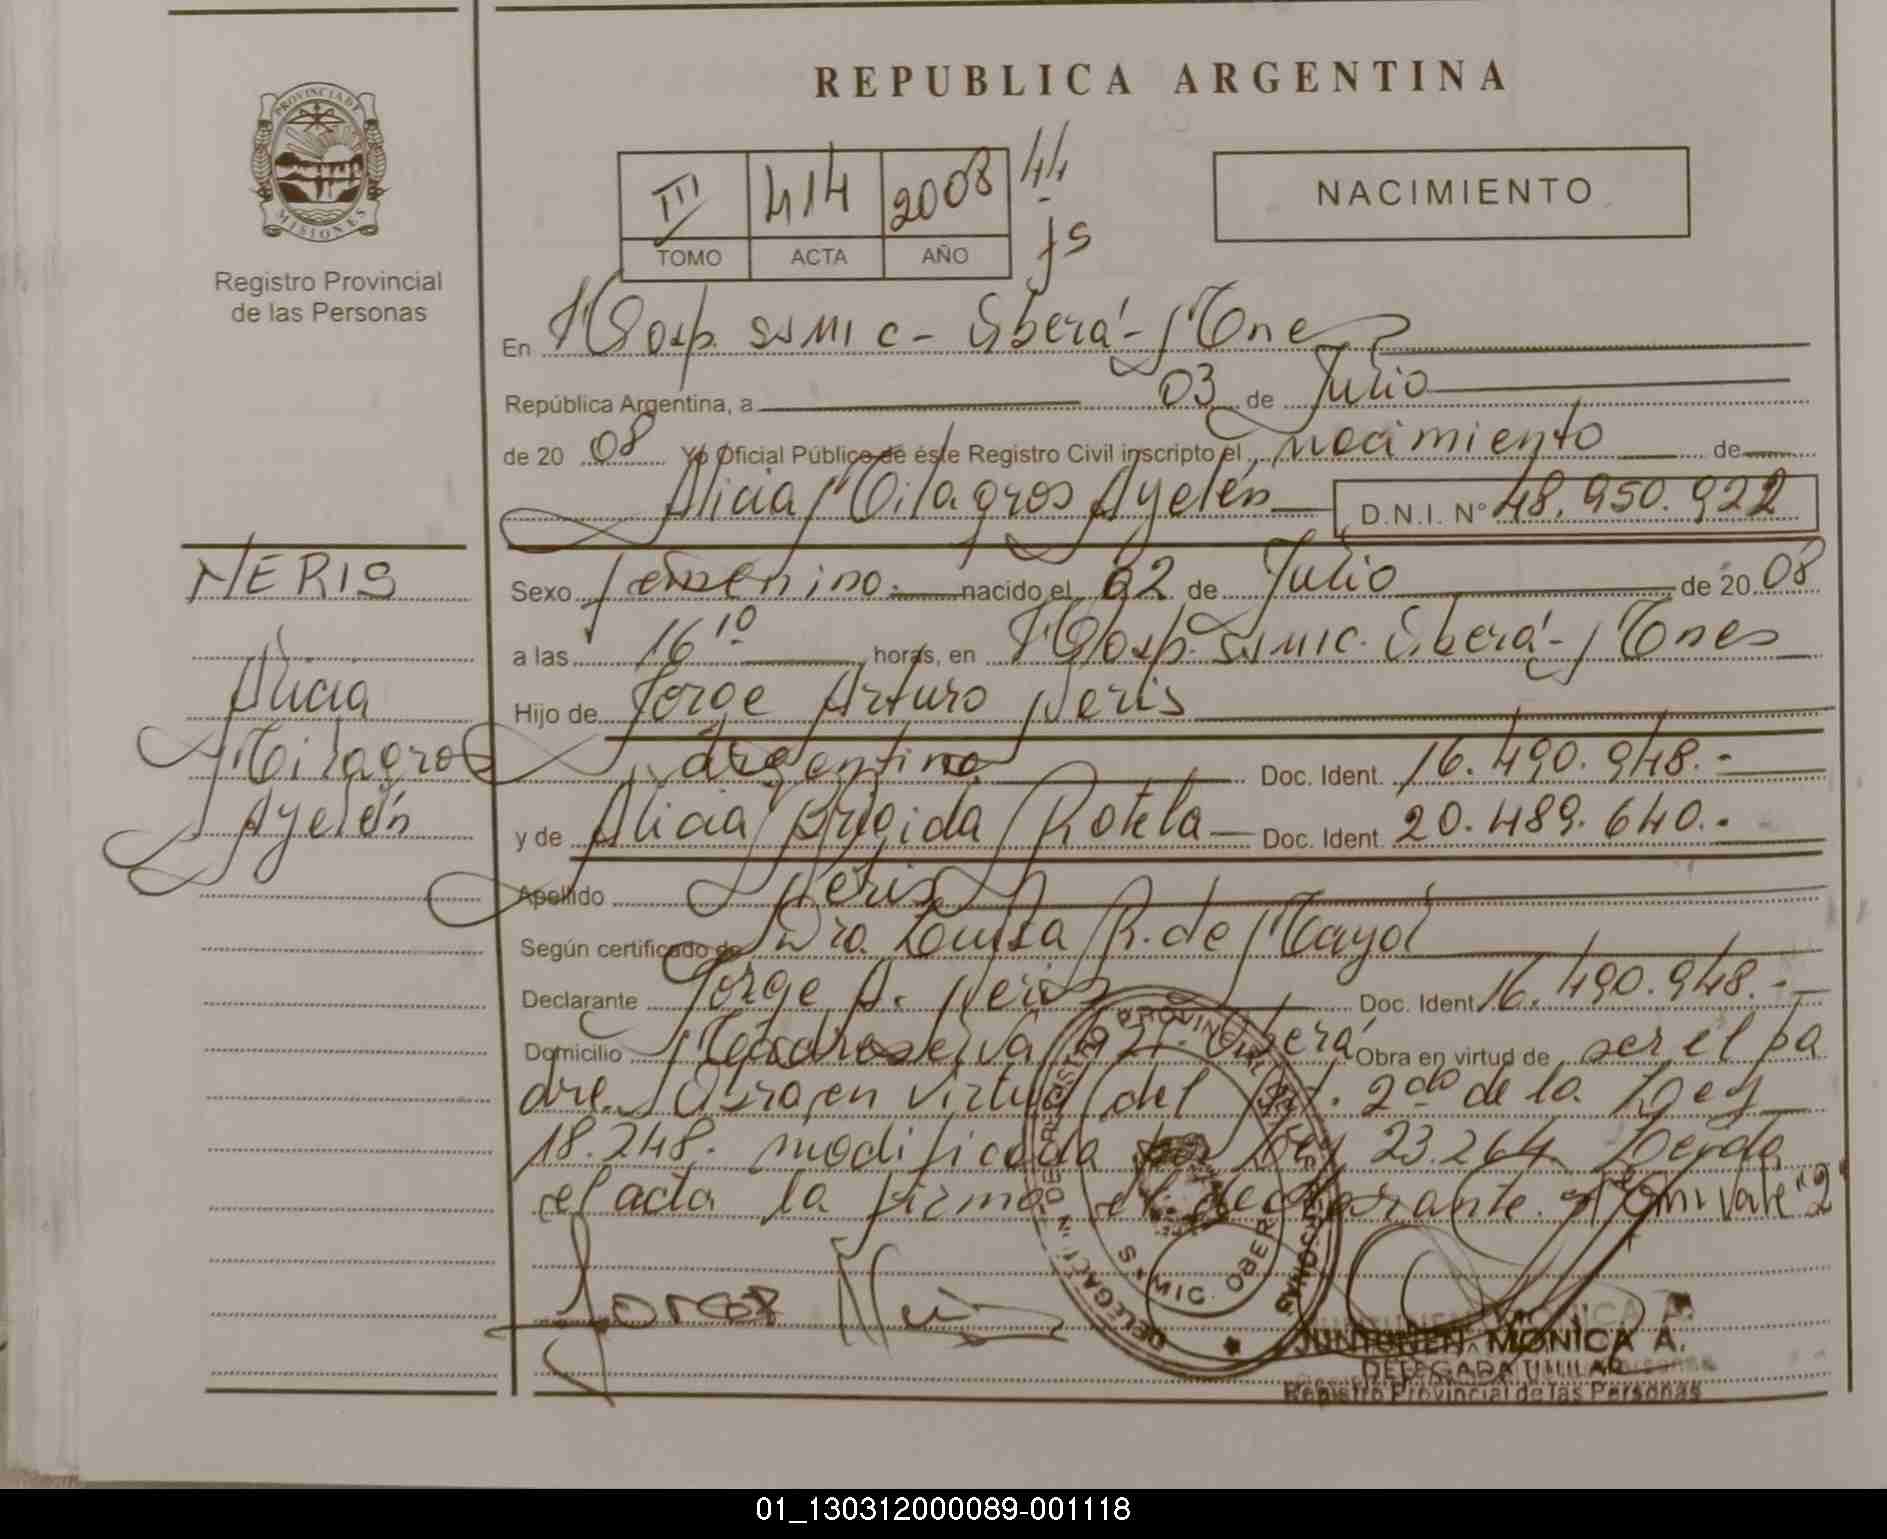 REPUBLICA ARGENTINA
PROVINCIA DE
MISIONES
Registro Provincial
de las Personas
III 414 2008 44
TOMO ACTA AÑO
js
NACIMIENTO
En Hosp. SSMIC - Oberá - Mnes
República Argentina, a 03 de Julio
de 2008 Yo Oficial Público de éste Registro Civil inscripto el nacimiento de
Alicia Milagros Ayelén D.N.I. N° 48.950.922
NERIS
Alicia
Milagros
Ayelén
Sexo femenino.- nacido el 02 de Julio de 2008
a las 16 10 horas, en Hosp. SSMIC. Oberá - Mnes
Hijo de Jorge Arturo Neris
argentino Doc. Ident. 16.490.948.-
y de Alicia Brigida Rotela Doc. Ident. 20.489.640.-
Apellido Neris
Según certificado de Dra. Louisa R. de Mayol
Declarante Jorge A. Neris Doc. Ident. 16.490.948.-
Domicilio Madreselva 621. Oberá Obra en virtud de ser el pa
dre. Obra en virtud del Art. 2do de la Ley
18.248. modificada por Ley 23.264. Leída
el acta la firma el declarante. Vale "2"
Jorge Neris
DELEGAC. N. DE REGISTRO PROVINCIAL DE LAS PERSONAS
S.S.MIC. OBERA
JUNTUNEN, MONICA A.
DELEGADA TITULAR
Registro Provincial de las Personas
01_130312000089-001118